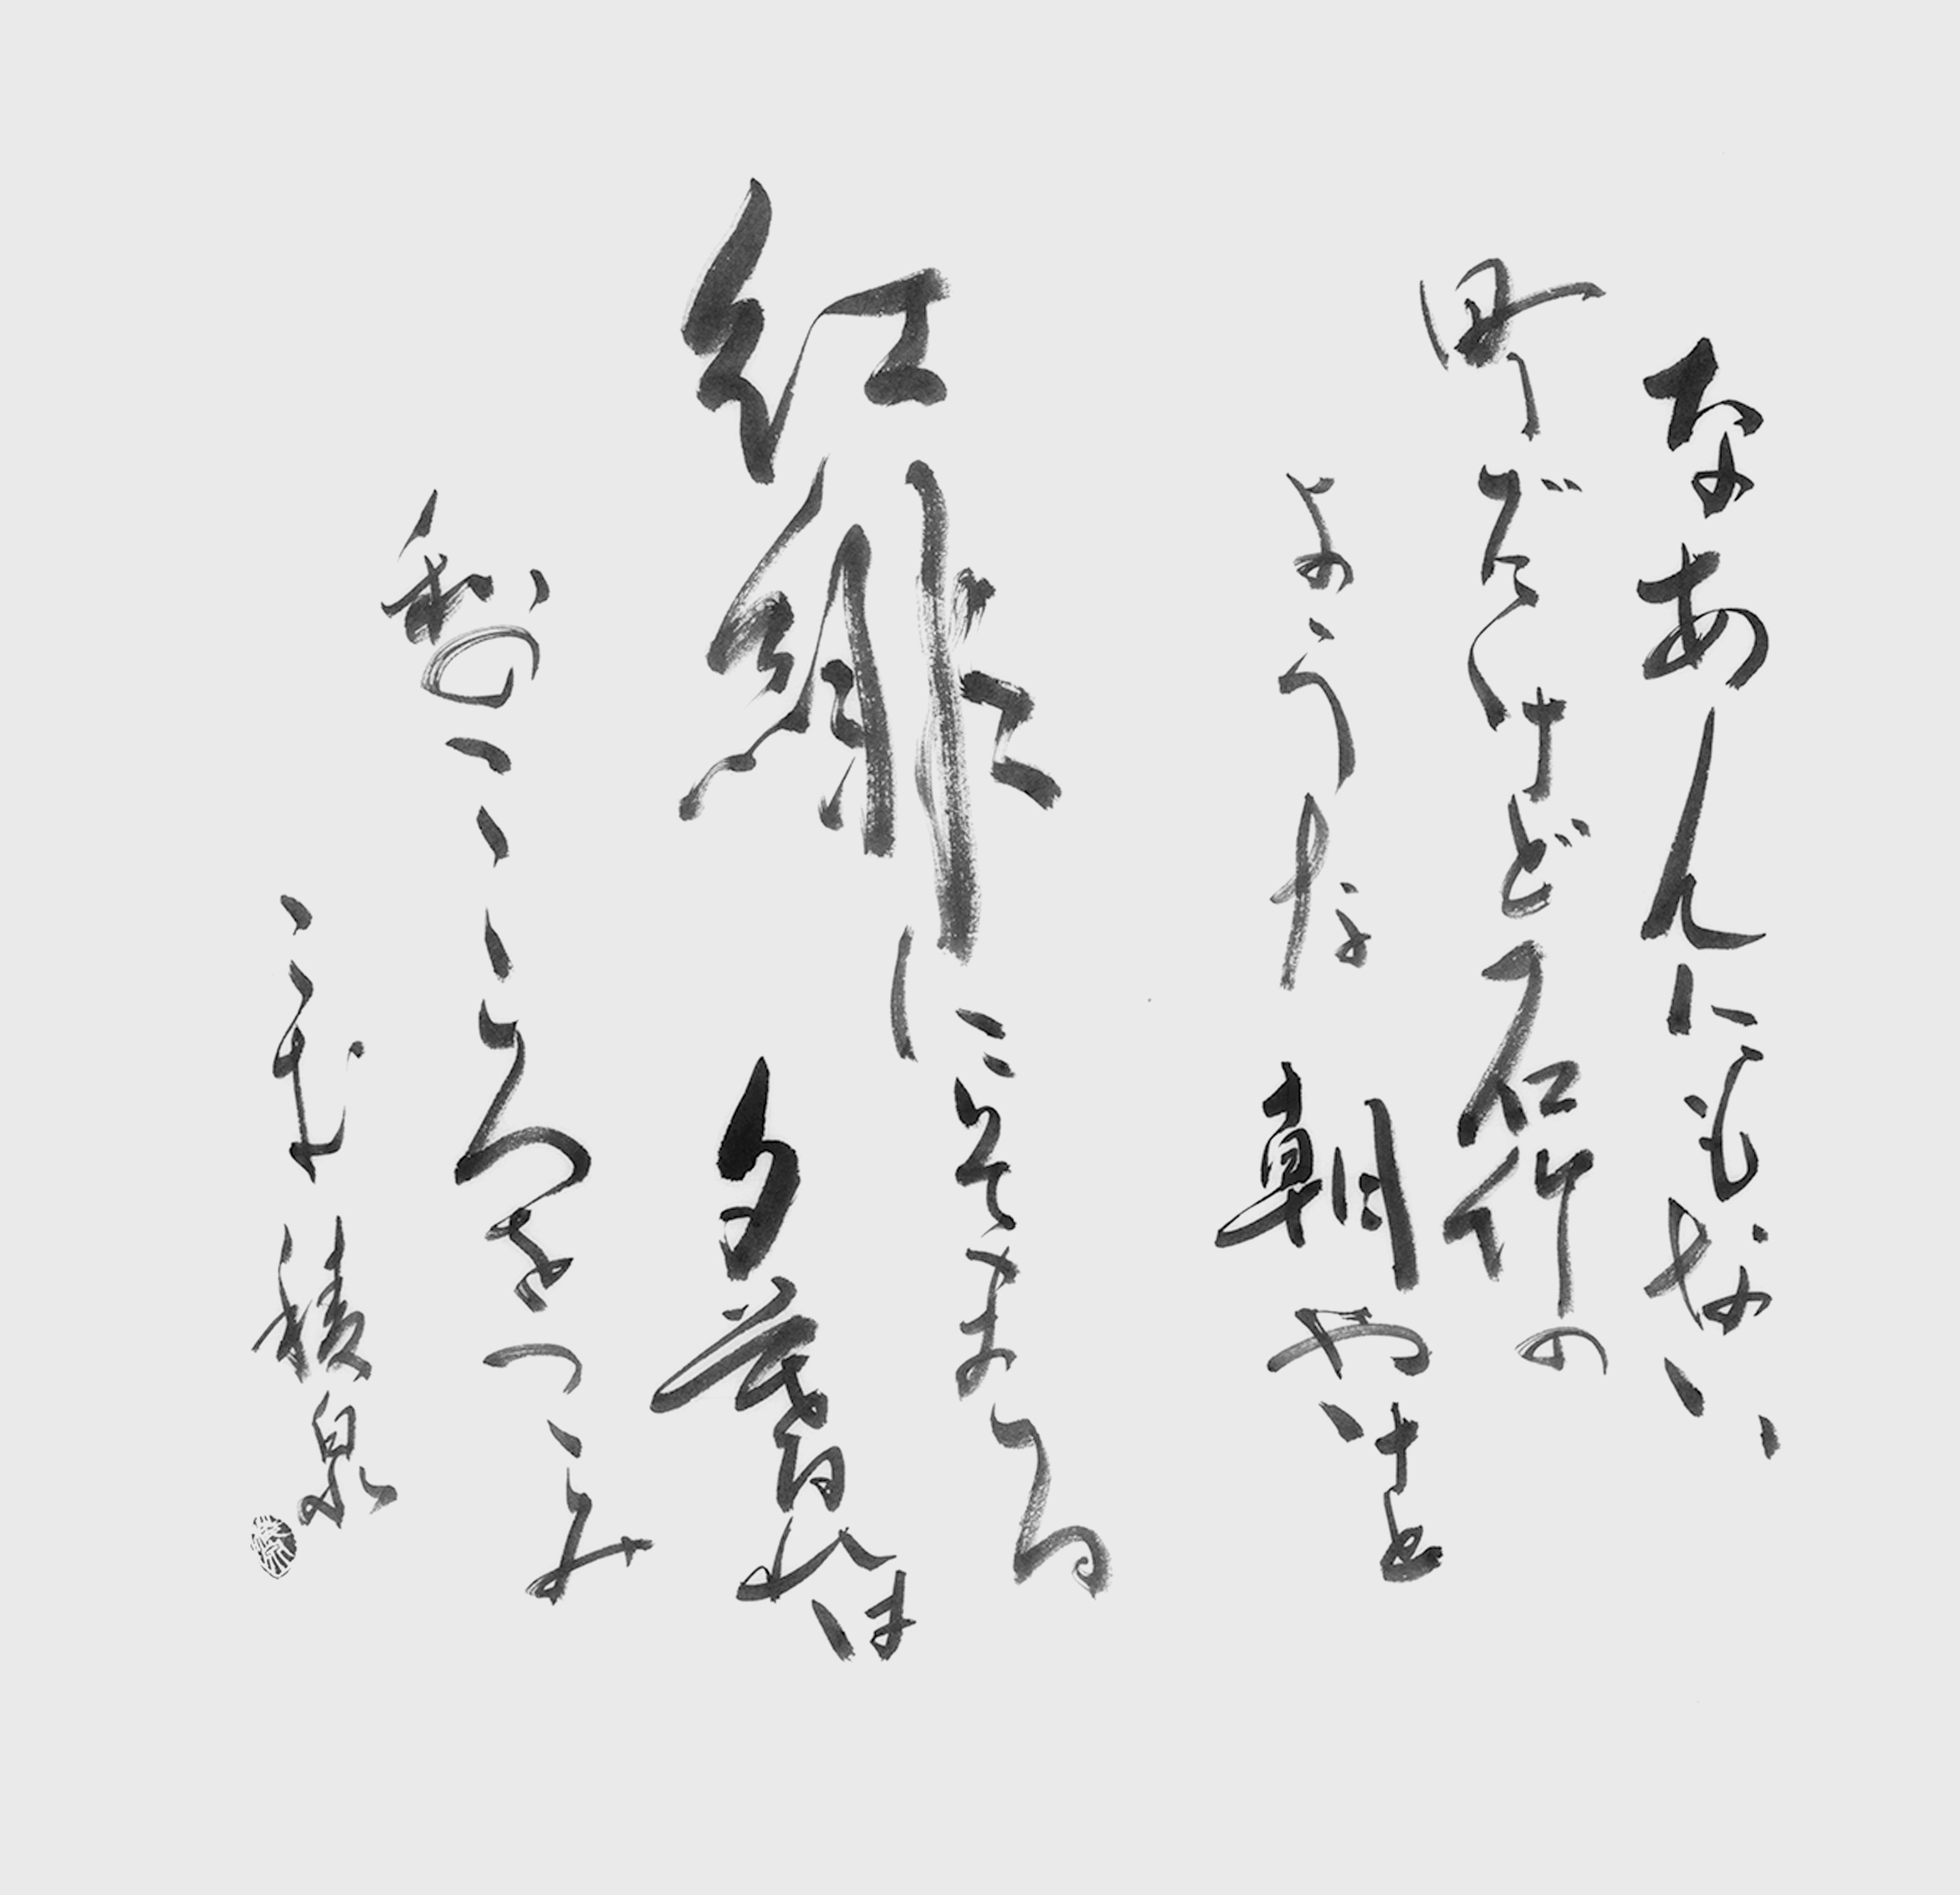 なあんにもない
町だけど石竹の
ような 朝やけと
紅緋にそまる
夕暮れは
私のこころをつつみ
こむ 積泉